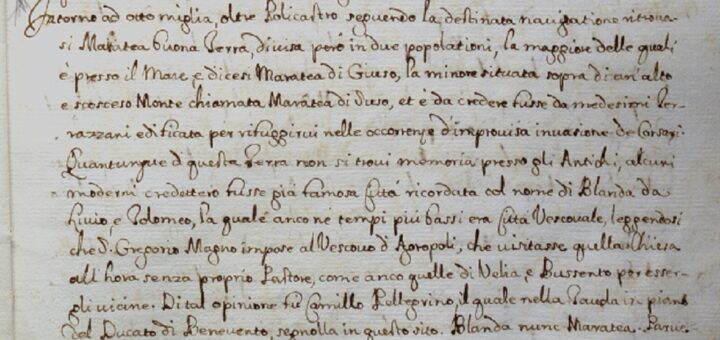 Intorno ad otto miglia, oltre Policastro seguendo la destinata navigatione ritrova-
si Maratea buona Terra, divisa però in due popolationi, la maggiore delle quali
è presso il Mare, e dicesi Maratea di Giuso, la minore situata sopra di un' alto
e scosceso Monte chiamata Maratea di Suso, et è da credere fusse da medesimi Ter-
razzani edificata per rifuggirvi nelle occorrenze d'improvisa invasione de Corsari.
Quantunque d questa Terra non si trovi memoria presso gli Antichi, alcuni
moderni credettero fusse già famosa Città ricordata col nome di Blanda da
Livio, e Tolomeo, la quale anco nè tempi più bassi era Città Vescovale, leggendosi
che S. Gregorio Magno impose al Vescovo d Agropoli, che visitasse quella Chiesa
all' hora senza proprio Pastore, come anco quelle di Velia, e Bussento per esser-
gli vicine. Di tal opinione fù Camillo Pellegrino, il quale nella Tavola in piano
del Ducato di Benevento, segnolla in questo sito. Blanda nunc Maratea.